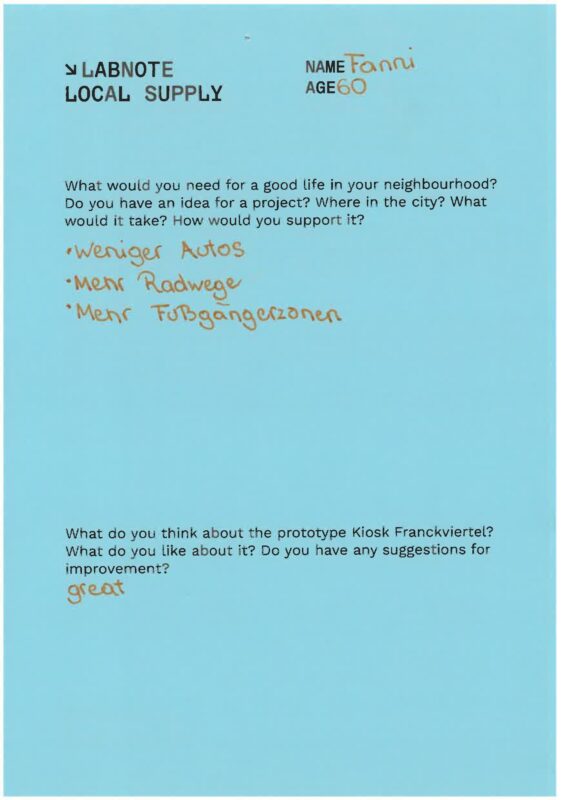 ↘ LABNOTE
LOCAL SUPPLY
NAME Fanni
AGE 60
What would you need for a good life in your neighbourhood?
Do you have an idea for a project? Where in the city? What
would it take? How would you support it?
• Weniger Autos
• Mehr Radwege
• Mehr Fußgängerzonen
What do you think about the prototype Kiosk Franckviertel?
What do you like about it? Do you have any suggestions for
improvement?
great